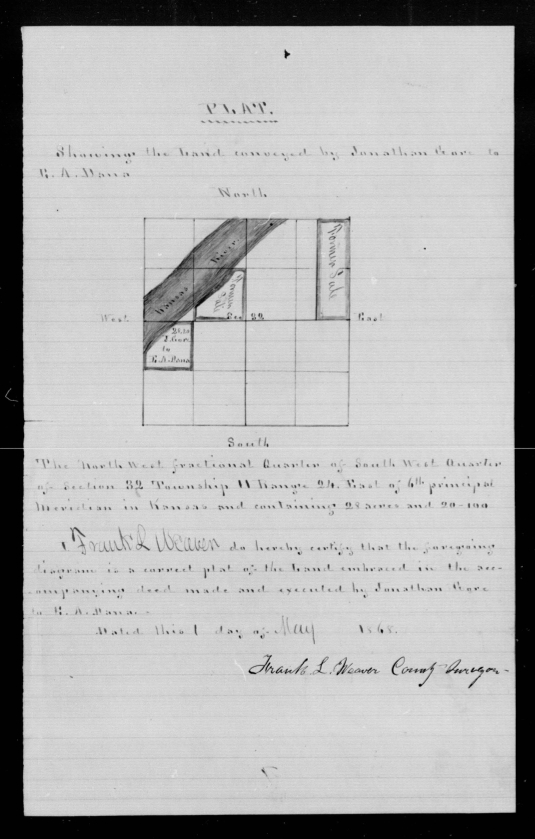 PLAT.
Showing the Land conveyed by Jonathan Gore to
C. A. Dana
North
Kansas River
Former Sale
West
Sec 32
East
28.20
J. Gore
to
C. A. Dana
South
The North West fractional Quarter of South West Quarter
of Section 32 Township 11 Range 24. East of 6th principal
Meridian in Kansas and containing 28 acres and 20-100
I Frank L Weaver do hereby certify that the foregoing
diagram is a correct plat of the Land embraced in the acc-
ompanying deed made and executed by Jonathan Gore
to C. A. Dana.
Dated this 1 day of May 1868.
Frank L. Weaver County Surveyor